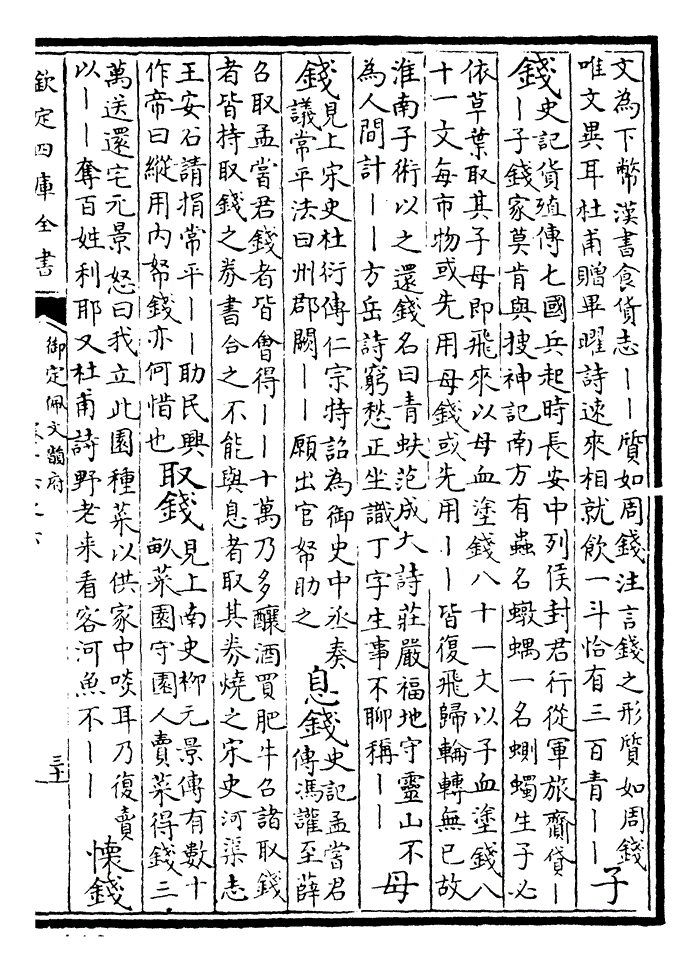 文為下幣漢書食貨志丨丨質如周錢注言錢之形質如周錢
唯文異耳杜甫贈畢曜詩速來相就飲一斗恰有三百青丨丨
子
錢
史記貨殖傳七國兵起時長安中列侯封君行從軍旅齎貸丨
丨子錢家莫肯與搜神記南方有蟲名𧑒𧍪一名𧍒蠋生子必
依草葉取其子母即飛來以母血塗錢八十一文以子血塗錢八
十一文每市物或先用母錢或先用丨丨皆復飛歸輪轉無已故
淮南子術以之還錢名曰青蚨范成大詩莊嚴福地守靈山不
為人間計丨丨方岳詩窮愁正坐識丁字生事不聊稱丨丨
母
錢
見上宋史杜衍傳仁宗特詔為御史中丞奏
議常平法曰州郡闕丨丨願出官帑助之
息錢
史記孟嘗君
傳馮驩至薛
召取孟嘗君錢者皆會得丨丨十萬乃多釀酒買肥牛召諸取錢
者皆持取錢之券書合之不能與息者取其券燒之宋史河渠志
王安石請捐常平丨丨助民興
作帝曰縱用內帑錢亦何惜也
取錢
見上南史柳元景傳有數十
畝菜園守園人賣菜得錢三
萬送還宅元景怒曰我立此園種菜以供家中啖耳乃復賣
以丨丨奪百姓利耶又杜甫詩野老來看客河魚不丨丨
懷錢
欽定四庫全書
御定佩文韻府
三十